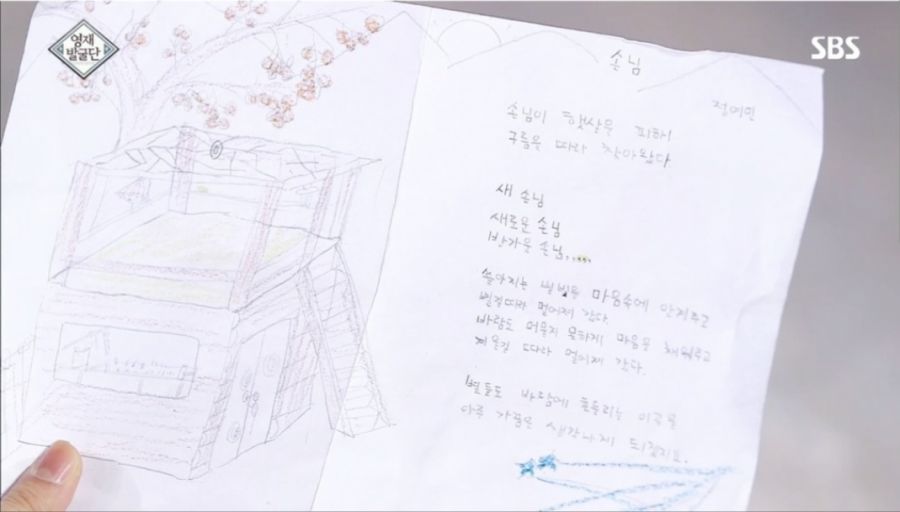 영재
발굴단
SBS
손님
정예민
손님이 햇살을 피해
구름을 따라 찾아왔다
새 손님
새로운 손님
반가운 손님....
쏟아지는 별빛을 마음속에 안겨주고
별길따라 멀어져 갔다.
바람도 머물지 못하게 마음을 채워주고
겨울길 따라 멀어져 간다.
별들도 바람에 흔들리는 이곳을
아주 가끔은 생각나게 되겠지요.